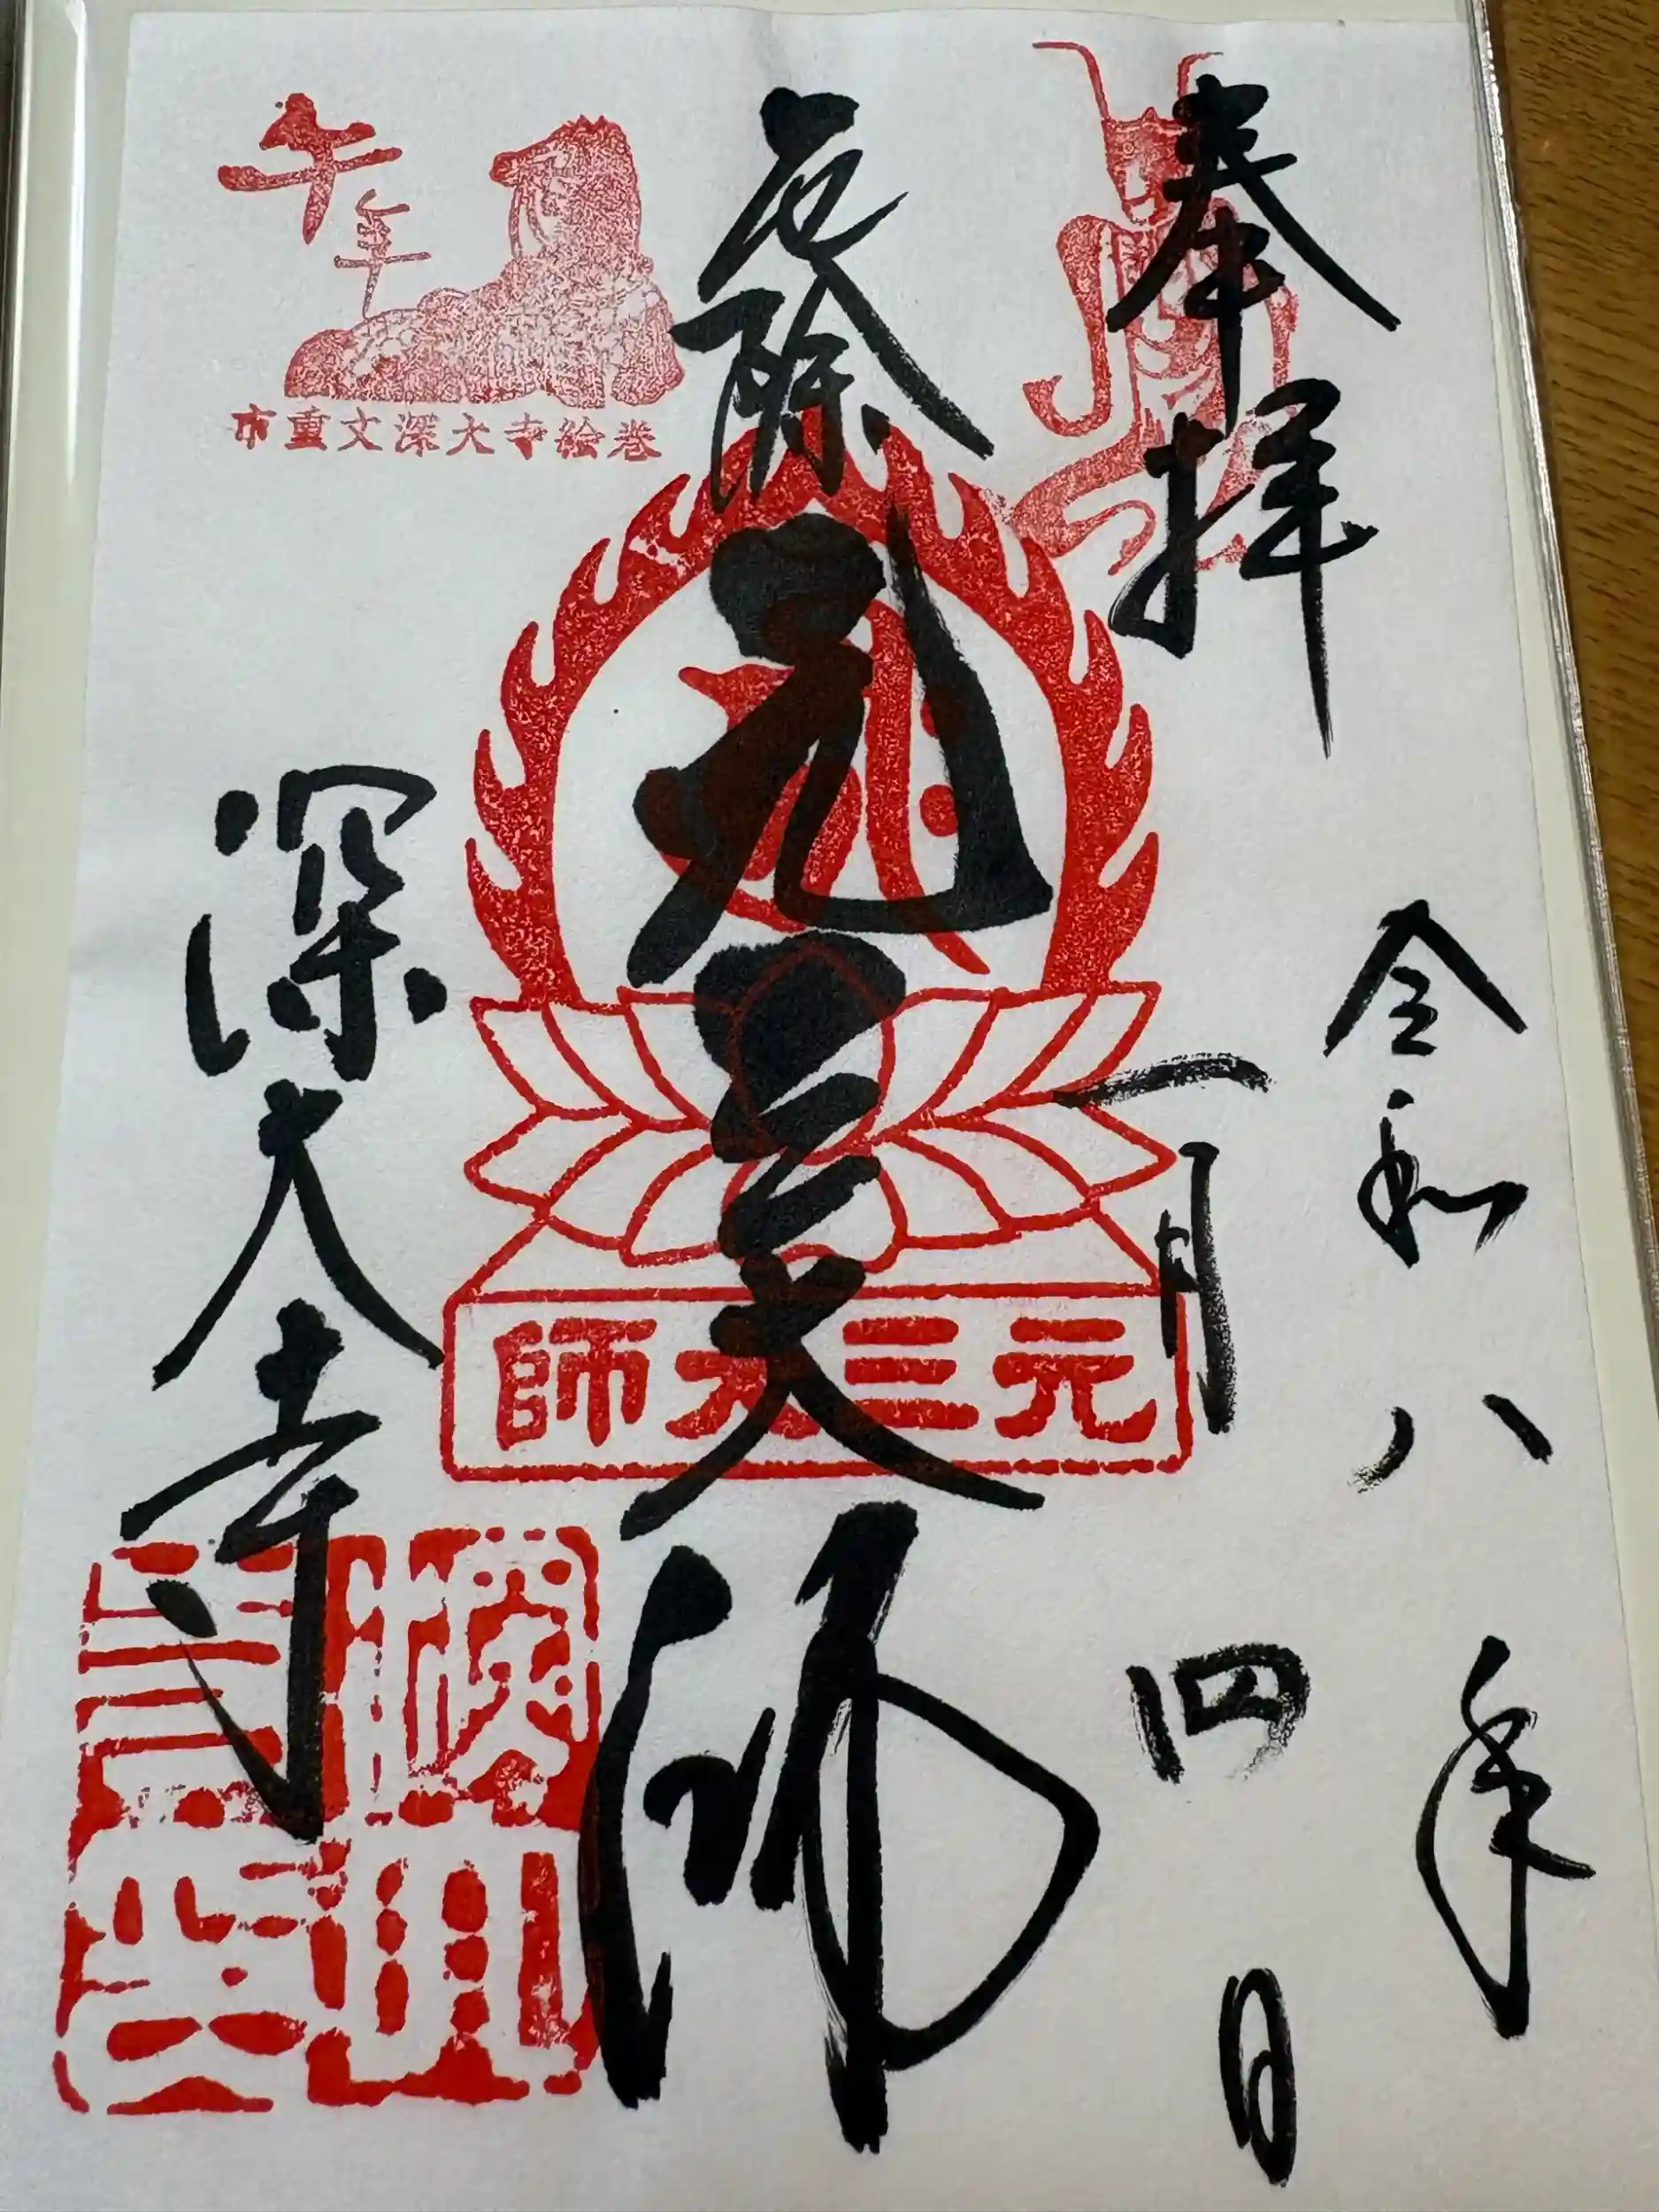 奉拝
令和八年
一月四日
厄除
元三大師
深大寺
午年
市重文深大寺絵巻
元三大師